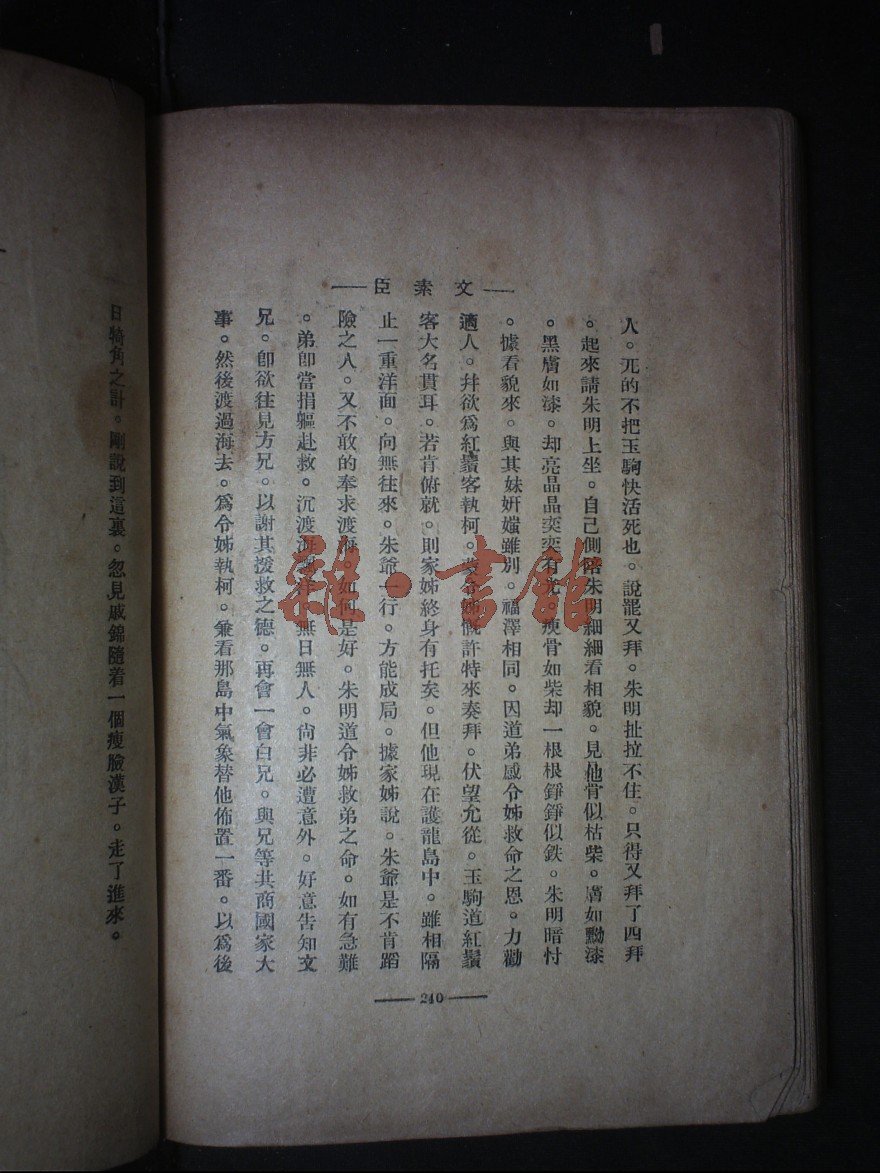 文素臣
人。兀的不把玉駒快活死也。說罷又拜。朱明扯拉不住。只得又拜了四拜
。起來請朱明上坐。自己側陪朱明細細看相貌。見他骨似枯柴。膚如黝漆
。黑膚如漆。却亮晶晶奕奕有光。瘐骨如柴却一根根錚錚似鉄。朱明暗忖
。據看貌來。與其妹妍媸雖別。福澤相同。因道弟感令姊救命之恩。力勸
適人。幷欲爲紅鬚客執柯。蒙令姊慨許特來奏拜。伏望允從。玉駒道紅鬚
客大名貫耳。若肯俯就。則家姊終身有托矣。但他現在護龍島中。雖相隔
止一重洋面。向無往來。朱爺一行。方能成局。據家姊說。朱爺是不肯蹈
險之人。又不敢的奉求渡海。如何是好。朱明道令姊救弟之命。如有急難
。弟卽當捐軀赴救。沉渡海 往。無日無人。尙非必遭意外。好意告知文
兄。卽欲往見方兄。以謝其援救之德。再會一會白兄。與兄等共商國家大
事。然後渡過海去。爲令姊執柯。兼看那島中氣象替他佈置一番。以爲後
240
日犄角之計。剛說到這裏。忽見戚錦隨着一個瘦臉漢子。走了進來。
雜·書館